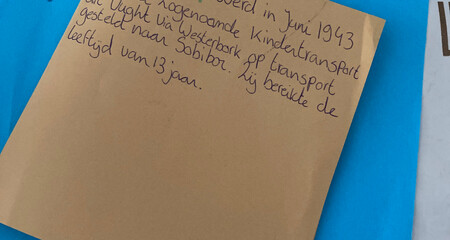 werd in Juni 1943
zogenoemde Kindertransport
Vught via Westerbork op transport
gesteld naar Sobibor. Zij bereikte de
leeftijd van 13 jaar.